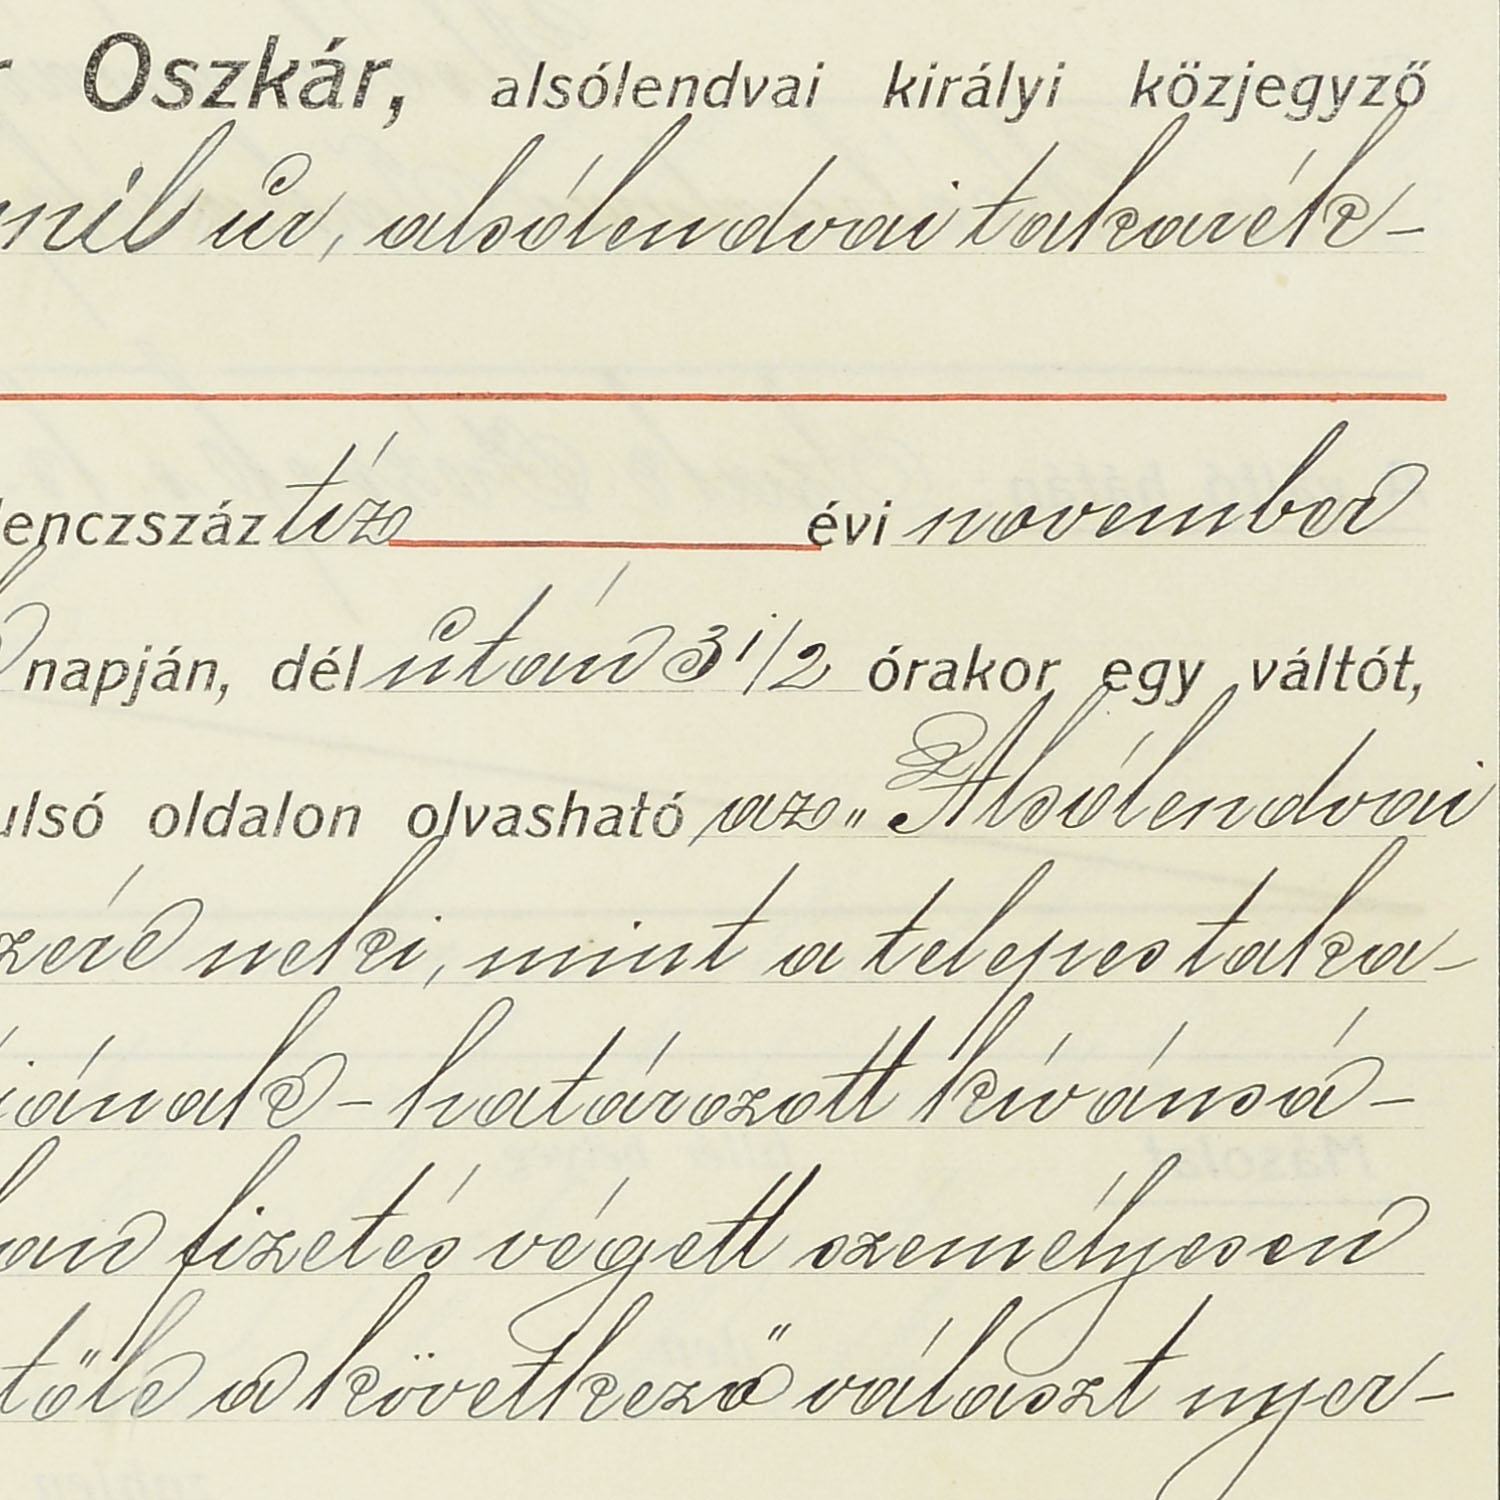 r Oszkár, alsólendvai királyi közjegyző
mil úr, alsólendvai takarék-
lenczszáz tíz évi november
napján, dél után 3 1/2 órakor egy váltót,
ulsó oldalon olvasható az „Alsólendvai
zéré neki, mint a telepes taka-
iának - határozott kívánsá-
ban fizetés végett személyesen
tőle a következő választ nyer-